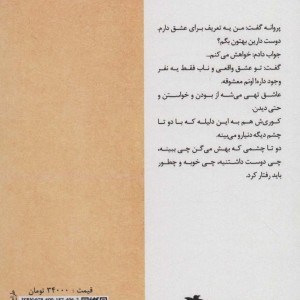 پروانه گفت: من یه تعریف برای عشق دارم.
دوست دارین بهتون بگم؟
جواب دادم: خواهش می‌کنم...
گفت: تو عشق واقعی و ناب فقط یه نفر
وجود داره! اونم معشوقه.
عاشق تهی می‌شه از بودن و خواستن و
حتی دیدن.
کوری‌ش هم به این دلیله که با دو تا
چشم دیگه دنیارو می‌بینه.
دو تا چشمی که بهش می‌گن چی ببینه،
چی دوست داشتنیه، چی خوبه و چطور
باید رفتار کرد.
قیمت : ۳۴۰۰۰ تومان